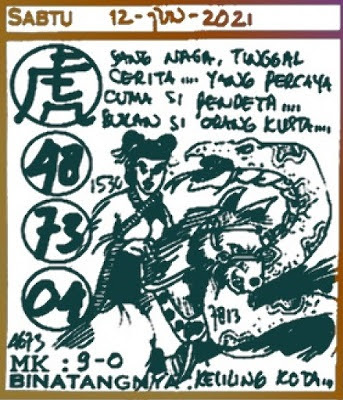 SABTU 12-JUN-2021
虎
SANG NAGA, TINGGAL
CERITA.... YANG PERCAYA
CUMA SI PENDETA....
BUKAN SI ORANG KUSTA....
48
1530
73
04
7813
4673
MK : 9-0
BINATANGNYA. KELILING KOTA...